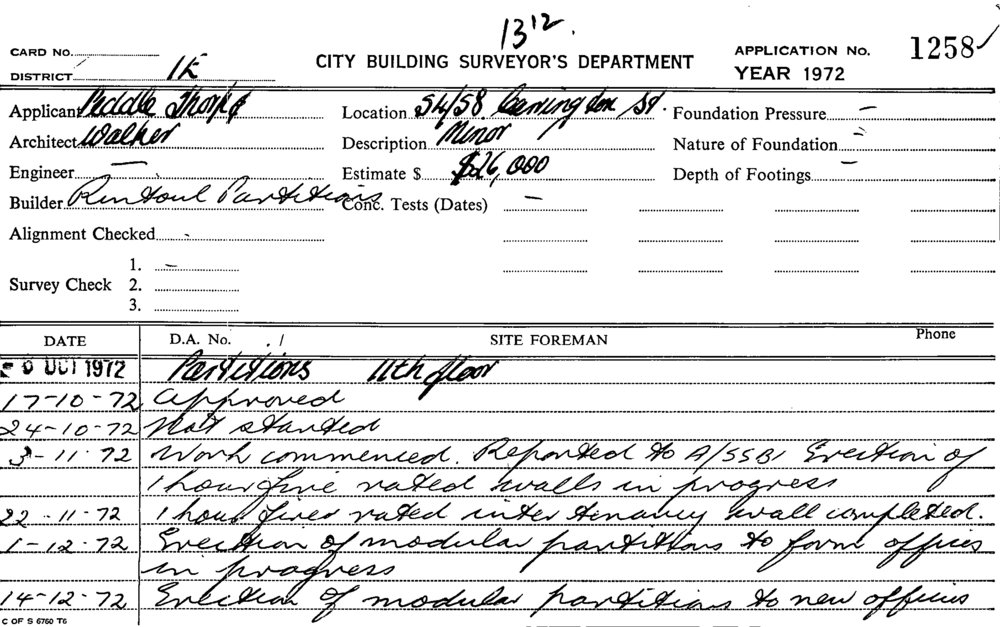 13¹².
CARD No.
CITY BUILDING SURVEYOR'S DEPARTMENT
APPLICATION No. 1258
DISTRICT 1E
YEAR 1972
Applicant Peddle Thorp &
Location 54/58 Carrington St.
Foundation Pressure –
Architect Walker
Description Minor
Nature of Foundation –
Engineer –
Estimate $ $26,000
Depth of Footings –
Builder Rintoul Partitions
Conc. Tests (Dates) –
Alignment Checked
Survey Check
1. –
2.
3.
DATE D.A. No. SITE FOREMAN Phone
OCT 1972 Partitions 11th floor
17-10-72 Approved
24-10-72 Not started
3-11-72 Work commenced. Reported to A/SSBI Erection of
1 hour fire rated walls in progress
22-11-72 1 hour fired rated inter tenancy wall completed.
1-12-72 Erection of modular partitions to form offices
in progress
14-12-72 Erection of modular partitions to new offices
C OF S 6760 T6